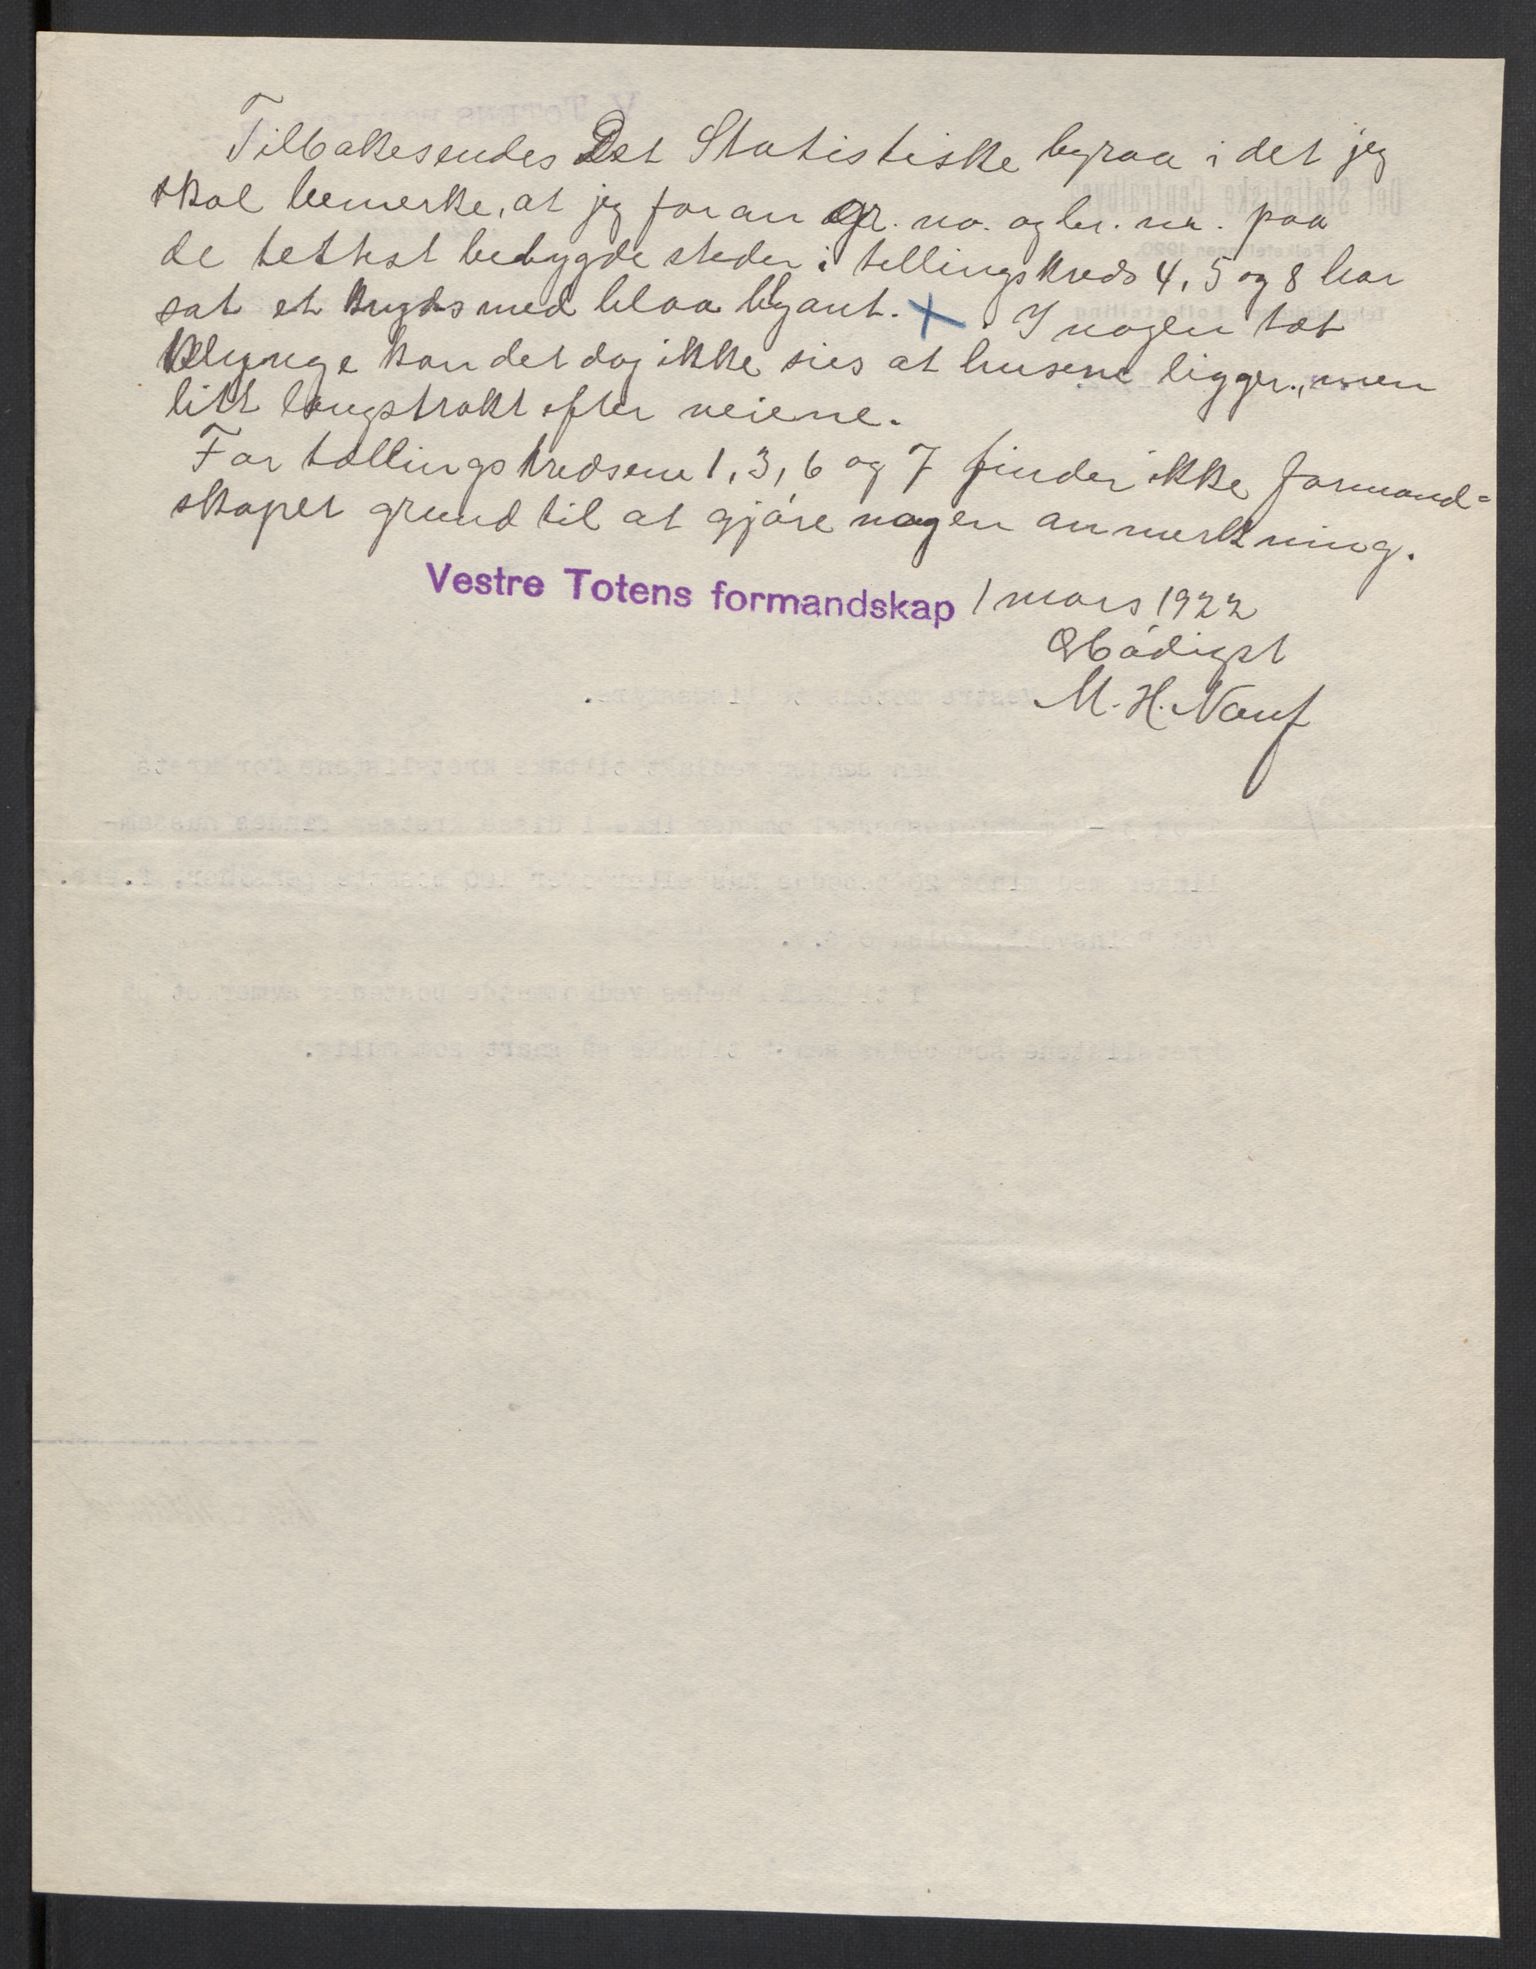 Tilbakesendes Det Statistiske byraa i det jeg
skal bemerke, at jeg foran gr. no. og br. no. paa
de tettest bebygde steder i tellingskreds 4, 5 og 8 har
sat et kryds med blaa blyant. X. I nogen tæt
klynge kan det dog ikke sies at husene ligger, men
litt langstrakt efter veiene.
For tællingskredsene 1, 3, 6 og 7 finder ikke formand=
skapet grund til at gjøre nogen anmerkning.
Vestre Totens formandskap 1 mars 1922
Ærbødigst
M. H.